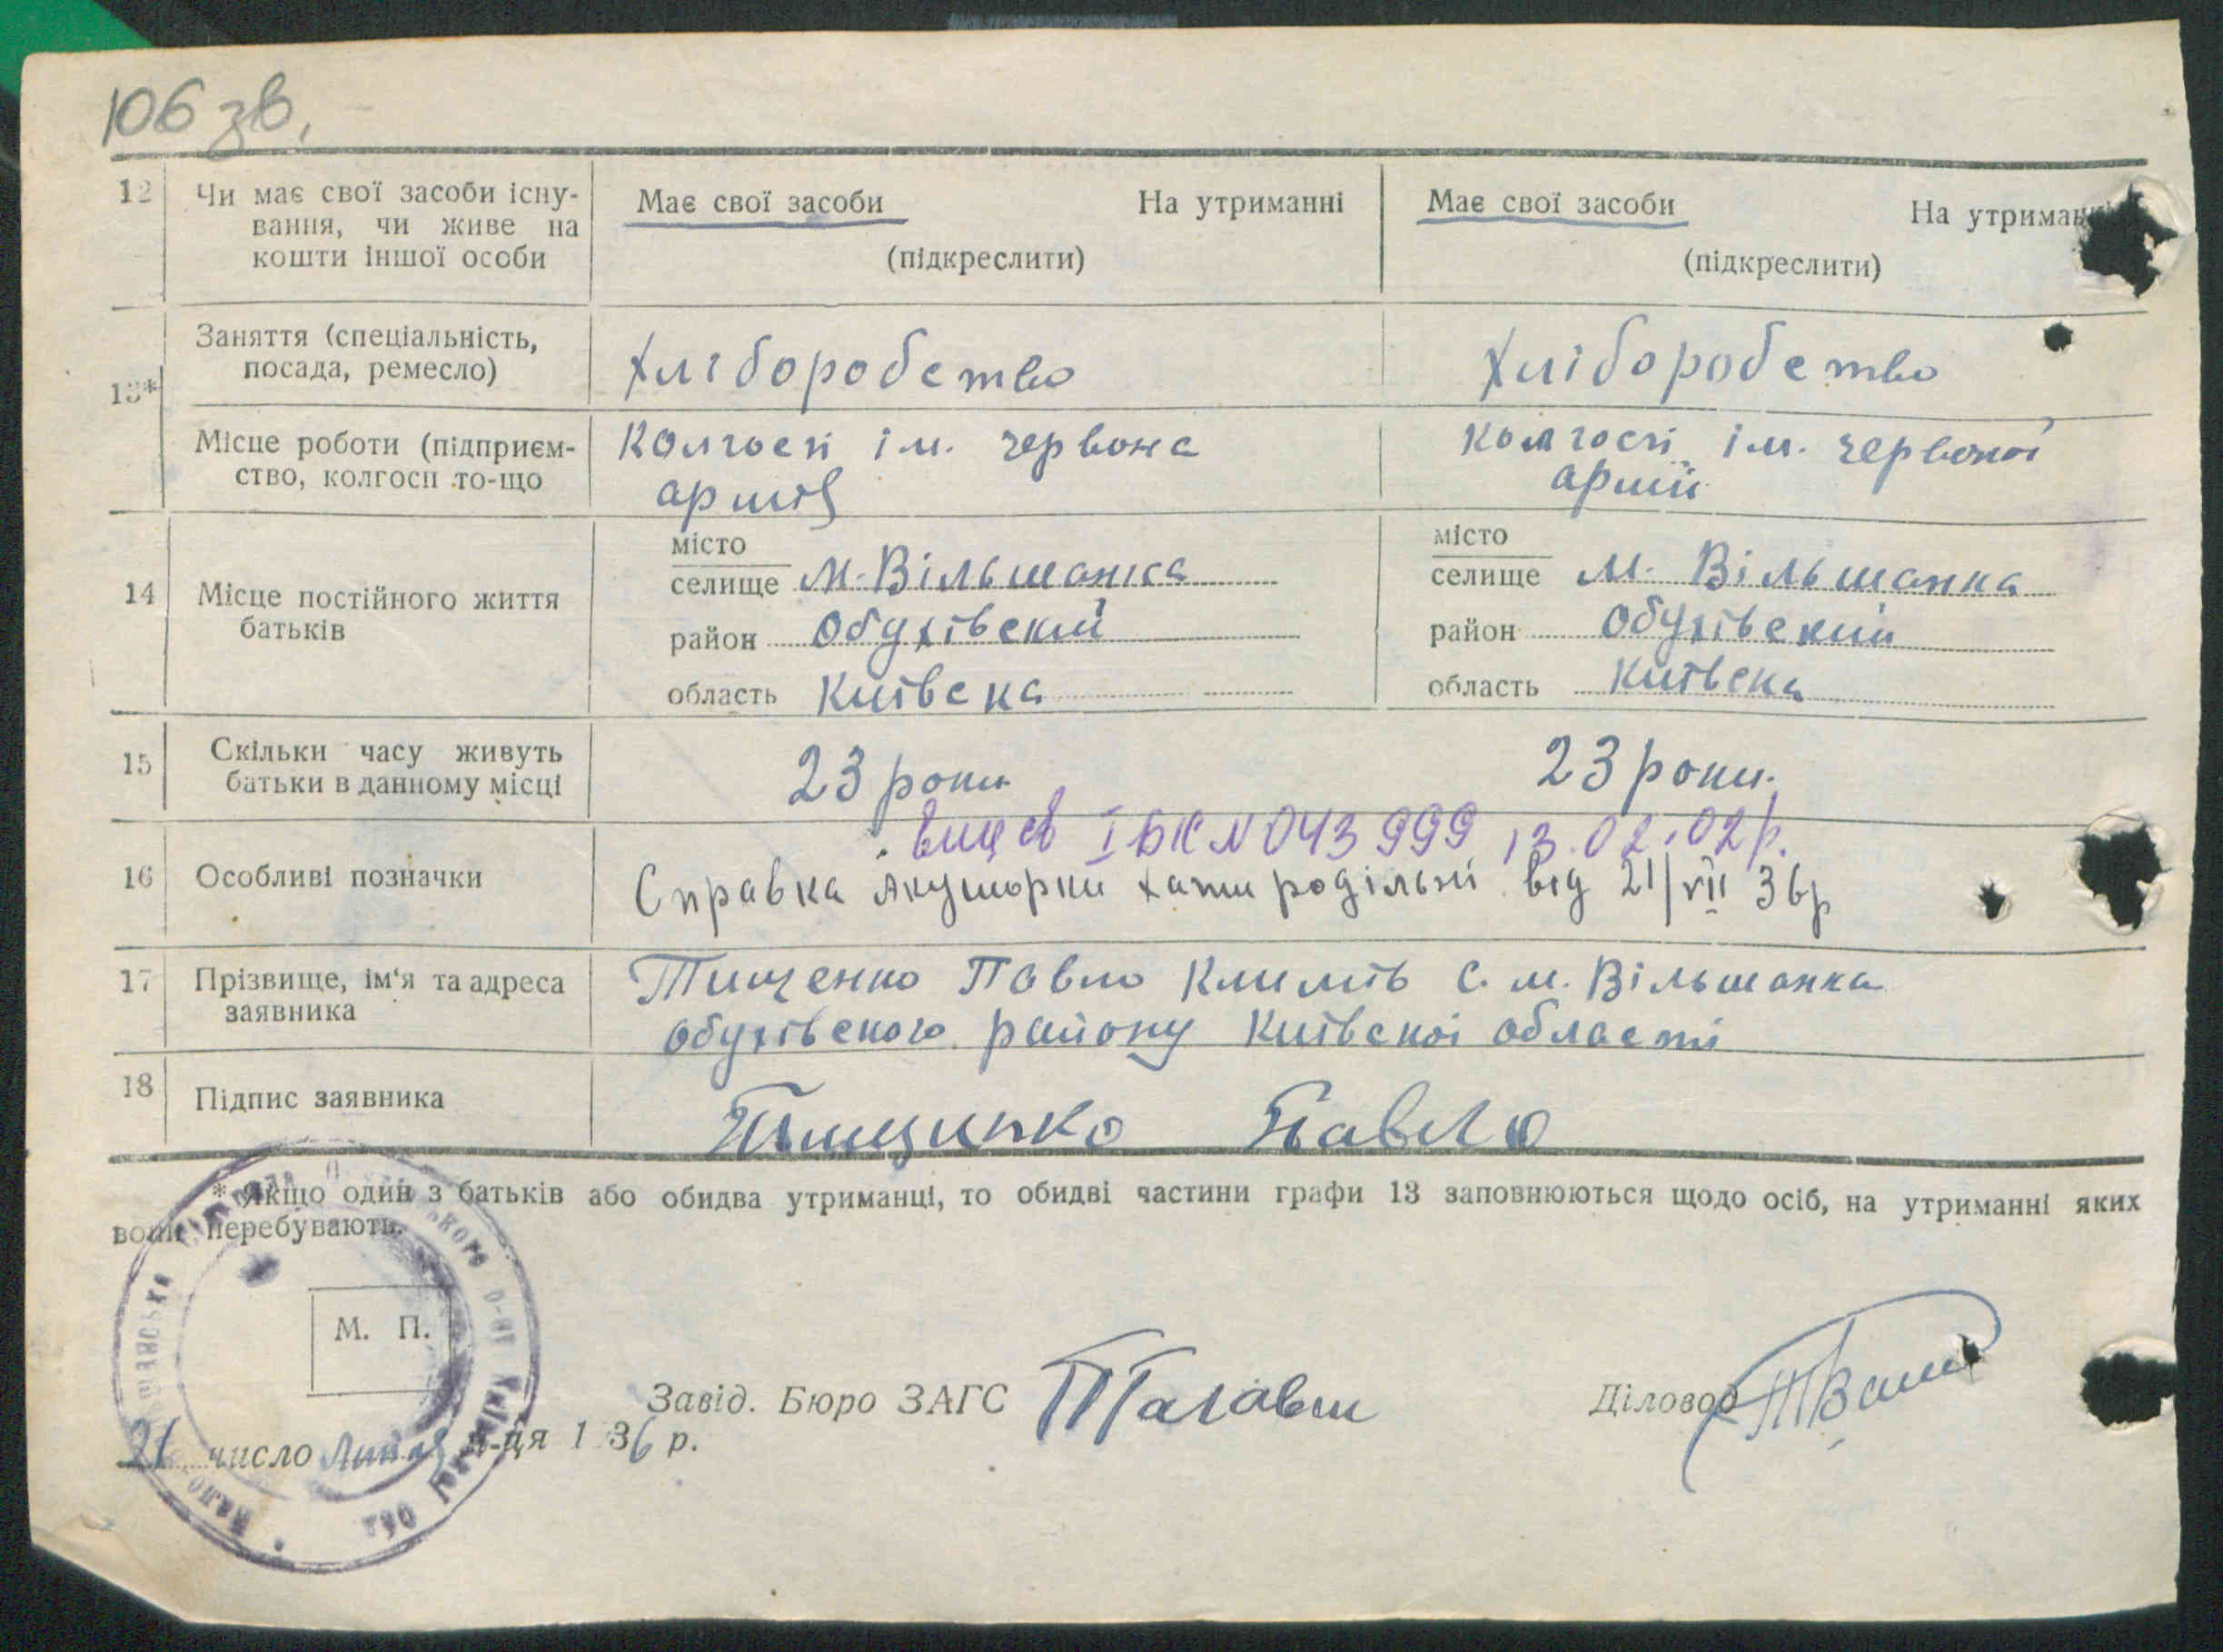 106 зв.
12 Чи має свої засоби існу-
вання, чи живе на
кошти іншої особи
Має свої засоби На утриманні
(підкреслити)
Має свої засоби На утриман
(підкреслити)
13*
Заняття (спеціальність,
посада, ремесло)
Хліборобство
Хліборобство
Місце роботи (підприєм-
ство, колгосп то-що
Колгосп ім. червона
армія
Колгосп ім. червоної
армії
14 Місце постійного життя
батьків
місто
селище М. Вільшанка
район Обухівский
область Київска
місто
селище М. Вільшанка
район Обухівский
область Київска
15 Скільки часу живуть
батьки в данному місці
23 роки
23 роки.
16 Особливі позначки
І БК № 043999 13.02.02р.
Справка Акушорки хати родільні від 21/VII 36р
17 Прізвище, ім'я та адреса
заявника
Тищенко Павло Климів С. М. Вільшанка
Обухівского району Київскоі області
18 Підпис заявника
Павло
* Якщо один з батьків або обидва утриманці, то обидві частини графи 13 заповнюються щодо осіб, на утриманні яких
вони перебувають.
М. П.
Завід. Бюро ЗАГС
Діловод
21 число Липня м-ця 1936 р.